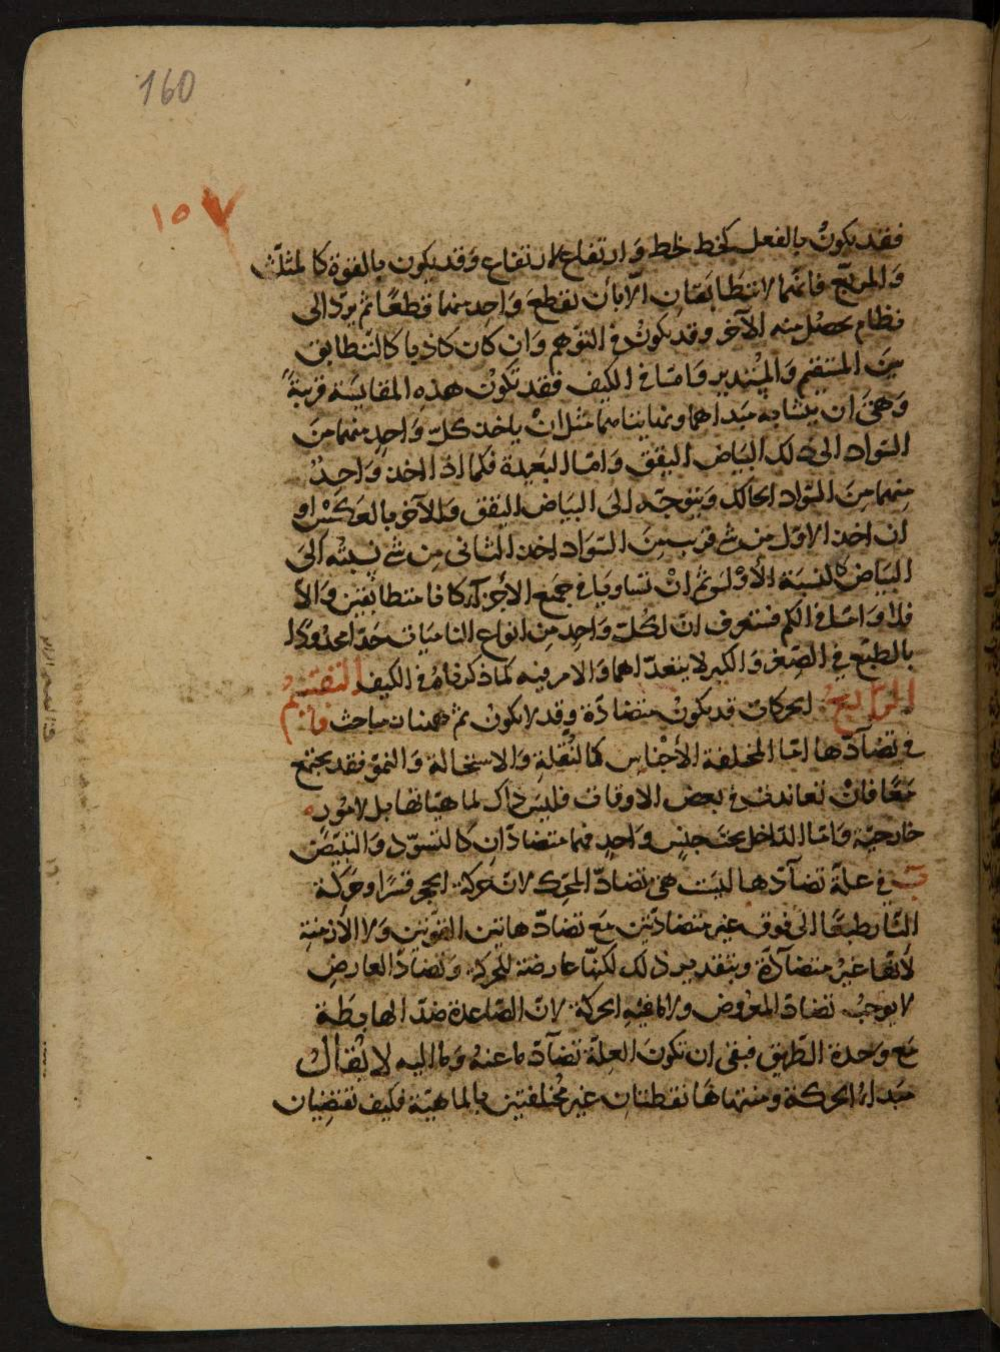 160
١٥٧
فقد يكون بالفعل كخط لخط وارتفاع لارتفاع وقد يكون بالقوة كالمثلث
والمربع فانهما لا يتطابقان الا بان نقطع واحد منهما قطعا ثم يرد الى
نظام يحصل منه الآخر وقد يكون في التوهم وان كان كاذبا كالتطابق
بين المستقيم والمستدير واما في الكيف فقد تكون هذه المقايسة قريبة
وهي ان يتشابه مبداهما ومنتهاهما مثل ان ياخذ كل واحد منهما من
السواد الى ذلك البياض اليقق واما البعيدة فكما اذا اخذ واحد
منهما من السواد الحالك ويتوجه الى البياض اليقق والآخر بالعكس او
ان اخذ الاول من شئ قريب من السواد اخذ الثاني من شئ نسبته الى
البياض كالنسبة الأولى ثم ان تساويا في جميع الأجزآء كانا متطابقين والا
فلا واما في الكم فستعرف ان لكل واحد من انواع الناميات حدا محدودا
بالطبع في الصغر والكبر لا يتعداهما والامر فيه كما ذكرناه في الكيف التقسيم
الرابع الحركات قد يكون متضادة وقد لا يكون ثم ههنا مباحث
في تضآدها اما المختلفة الأجناس كالنقلة والاستحالة والنمو فقد يجتمع
معا فان تعاندت في بعض الاوقات فليس ذاك لماهياتها بل لامور
خارجية واما الداخل تحت جنس واحد فهما متضادان كالتسود والتبيض
ب في علة تضآدها ليست هي تضاد المحرك لان حركة الحجر قسرا وحركة
النار طبعا الى فوق غير متضادتين مع تضاد هاتين القوتين ولا الأزمنة
لأنها غير متضآدة وبتقدير ذلك لكنها عارضة للحركة وتضاد العارض
لا يوجب تضاد المعروض ولا ما فيه الحركة لان الصاعدة ضد الهابطة
مع وحدة الطريق فبقى ان تكون العلة تضآد ما عنه وما اليه لا يقال
مبداء الحركة ومنتهاها نقطتان غير مختلفتين بالماهية فكيف تقتضيان